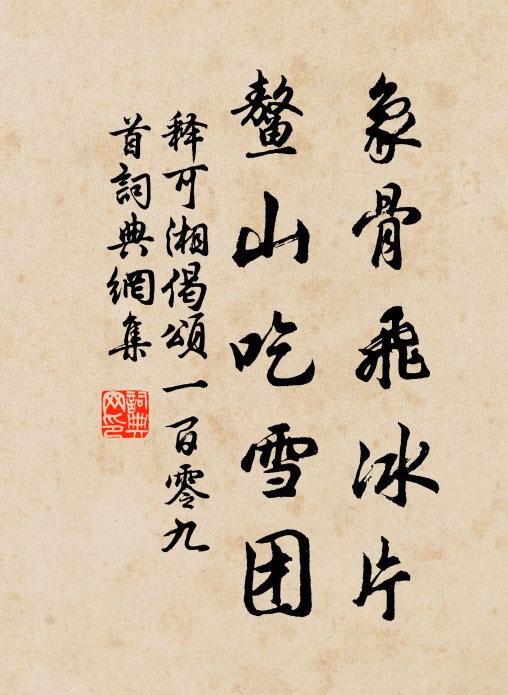 象骨飛冰片
鳌山吃雪团
释可湘偈頌一百零九
首詞典網集
詞典
网印